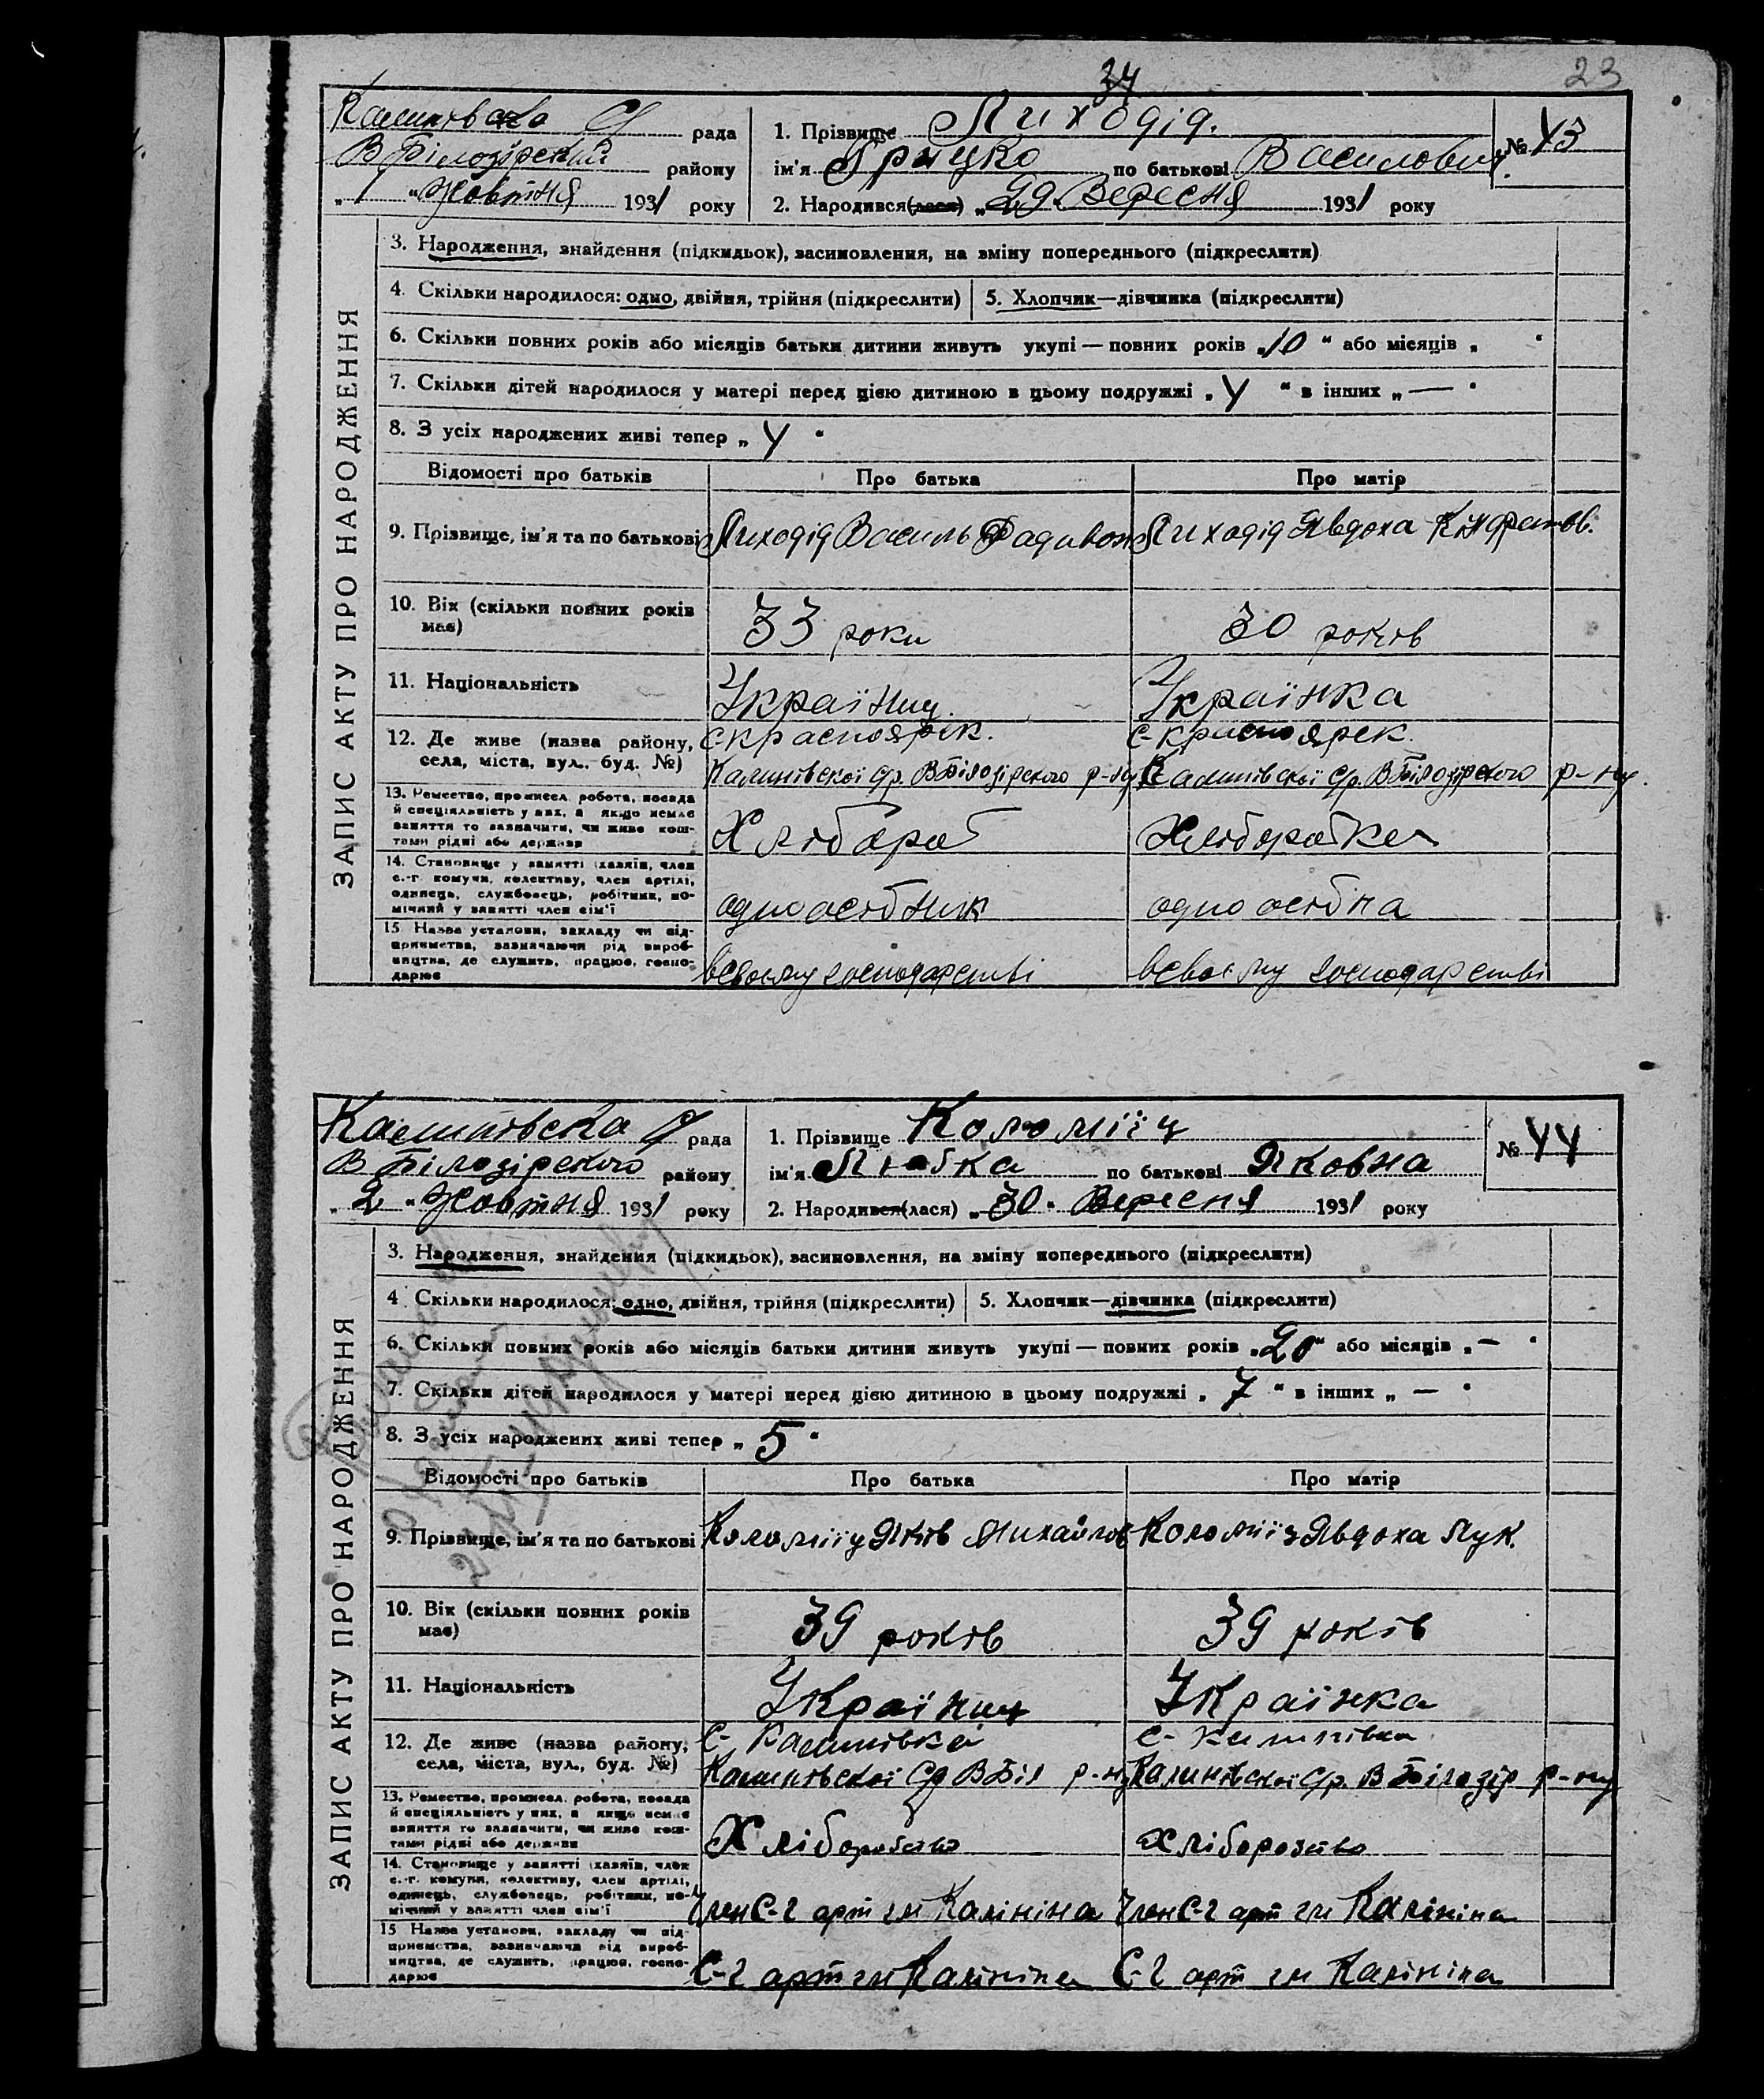 34
23
Калинівська С/ рада
В Білозірський району
„ 1 " Жовтня 1931 року
1. Прізвище Лиходід.
ім'я Грицко по батькові Василович.
2. Народився(лася) „ 29. Вересня 1931 року
№ 43
ЗАПИС АКТУ ПРО НАРОДЖЕННЯ
3. Народження, знайдення (підкидьок), засиновлення, на зміну попереднього (підкреслити)
4. Скільки народилося: одно, двійня, трійня (підкреслити) 5. Хлопчик—дівчинка (підкреслити)
6. Скільки повних років або місяців батьки дитини живуть укупі — повних років „10 " або місяців „ "
7. Скільки дітей народилося у матері перед цією дитиною в цьому подружжі „ 4 " в інших „ — "
8. З усіх народжених живі тепер „ 4 "
Відомості про батьків Про батька Про матір
9. Прізвище, ім'я та по батькові Лиходід Василь Лиходід Явдоха Кіндратов.
10. Вік (скільки повних років має) 33 роки 30 років
11. Національність Українец Українка
12. Де живе (назва району, с-Красноярск. с-Красноярск.
села, міста, вул., буд. №) Калинівської с/р. ВБілозірского р-ну Калинівської с/р. ВБілозірского р-ну.
13. Ремество, промисел, робота, посада
й спеціяльність у них, а якщо немає
заняття то зазначити, чи живе кош-
тами рідні або держави Хлібороб Хліборобка
14. Становище у занятті (хазяїн, член
с.-г. комуни, колективу, член артілі,
одинець, службовець, робітник, по-
мічний у занятті член сім'ї одноосібник одноосібна
15. Назва установи, закладу чи під-
приємства, зазначаючи рід вироб-
ництва, де служить, працює, госпо-
дарює всвоєму господарстві всвоєму господарстві
Калинівська С/ рада
В Білозірского району
„ 2 " Жовтня 1931 року
1. Прізвище Коломіїц
ім'я Любка по батькові Яковна
2. Народився(лася) „ 30 " Вересня 1931 року
№ 44
ЗАПИС АКТУ ПРО НАРОДЖЕННЯ
3. Народження, знайдення (підкидьок), засиновлення, на зміну попереднього (підкреслити)
4. Скільки народилося: одно, двійня, трійня (підкреслити) 5. Хлопчик—дівчинка (підкреслити)
6. Скільки повних років або місяців батьки дитини живуть укупі — повних років „20" або місяців „ — "
7. Скільки дітей народилося у матері перед цією дитиною в цьому подружжі „ 7 " в інших „ — "
8. З усіх народжених живі тепер „ 5 "
Відомості про батьків Про батька Про матір
9. Прізвище, ім'я та по батькові Коломіїц Яків Михайлов Коломіїц Явдоха Лук.
10. Вік (скільки повних років має) 39 років 39 років
11. Національність Українец Українка
12. Де живе (назва району, с- Калинівка с- Калинівка
села, міста, вул., буд. №) Калинівської С/р ВБіл р-ну Калинівської С/р. ВБілозір р-ну
13. Ремество, промисел, робота, посада
й спеціяльність у них, а якщо немає
заняття то зазначити, чи живе кош-
тами рідні або держави Хліборобство Хліборобство
14. Становище у занятті (хазяїн, член
с.-г. комуни, колективу, член артілі,
одинець, службовець, робітник, по-
мічний у занятті член сім'ї Член С-г арт ім Калініна Член С-г арт ім Калініна
15 Назва установи, закладу чи під-
приємства, зазначаючи рід вироб-
ництва, де служить, працює, госпо-
дарює С-г арт ім Калініна С-г арт ім Калініна